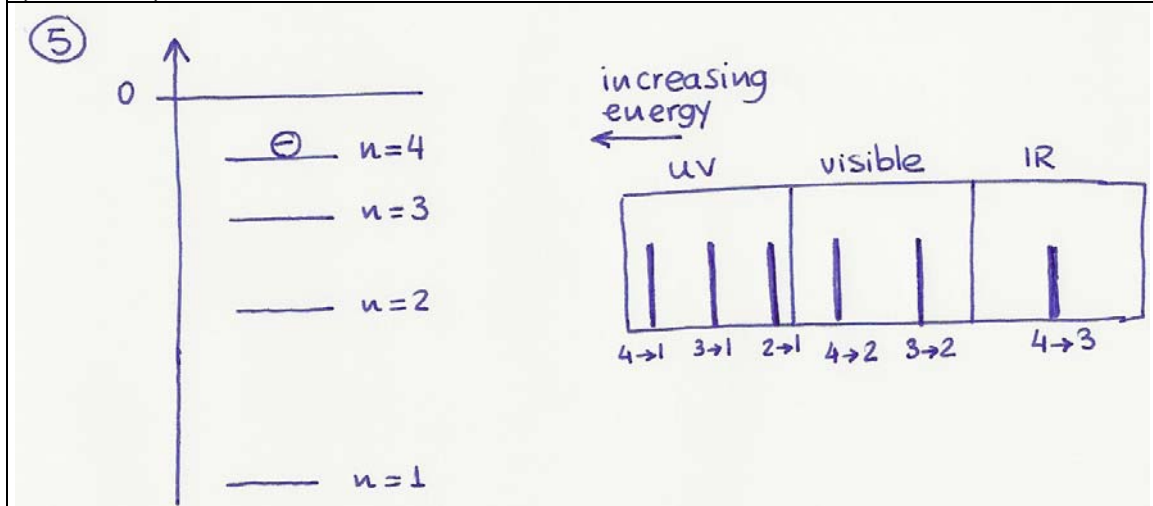 5
0
⊖ n=4
n=3
n=2
n=1
increasing
energy
uv visible IR
4→1 3→1 2→1 4→2 3→2 4→3